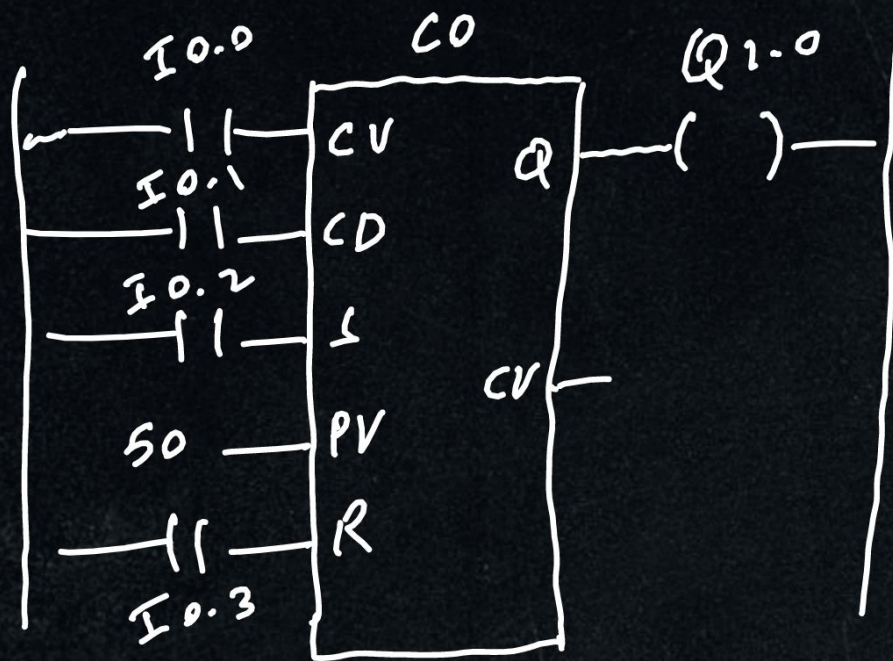 I0.0 C0 Q1.0
CV Q
I0.1
CD
I0.2
S
CV
50 PV
R
I0.3